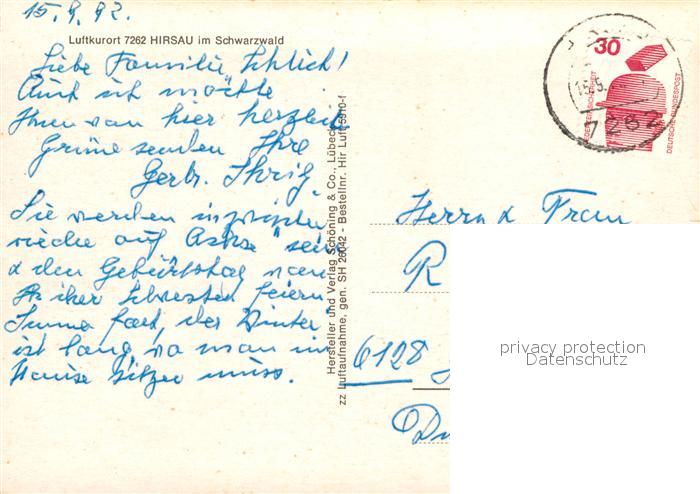 15.9.92.
Luftkurort 7262 HIRSAU im Schwarzwald
Liebe Familie Schlich!
Auch ich möchte
Ihnen von hier herzlich
Grüße senden Ihre
Gertr.
Sie werden inzwischen
wieder auf "sein
& den Geburtstag von
ihrer Schwester feiern
Immer fort, der Winter
ist lang wo man im
Hause sitzen muss.
Hersteller und Verlag Schöning & Co., Lübeck
zz Luftaufnahme, gen. SH 26042 - Bestellnr. Hir Luft 5910-f
30
DEUTSCHE BUNDESPOST
7262
Herrn & Frau
R
6128
privacy protection
Datenschutz